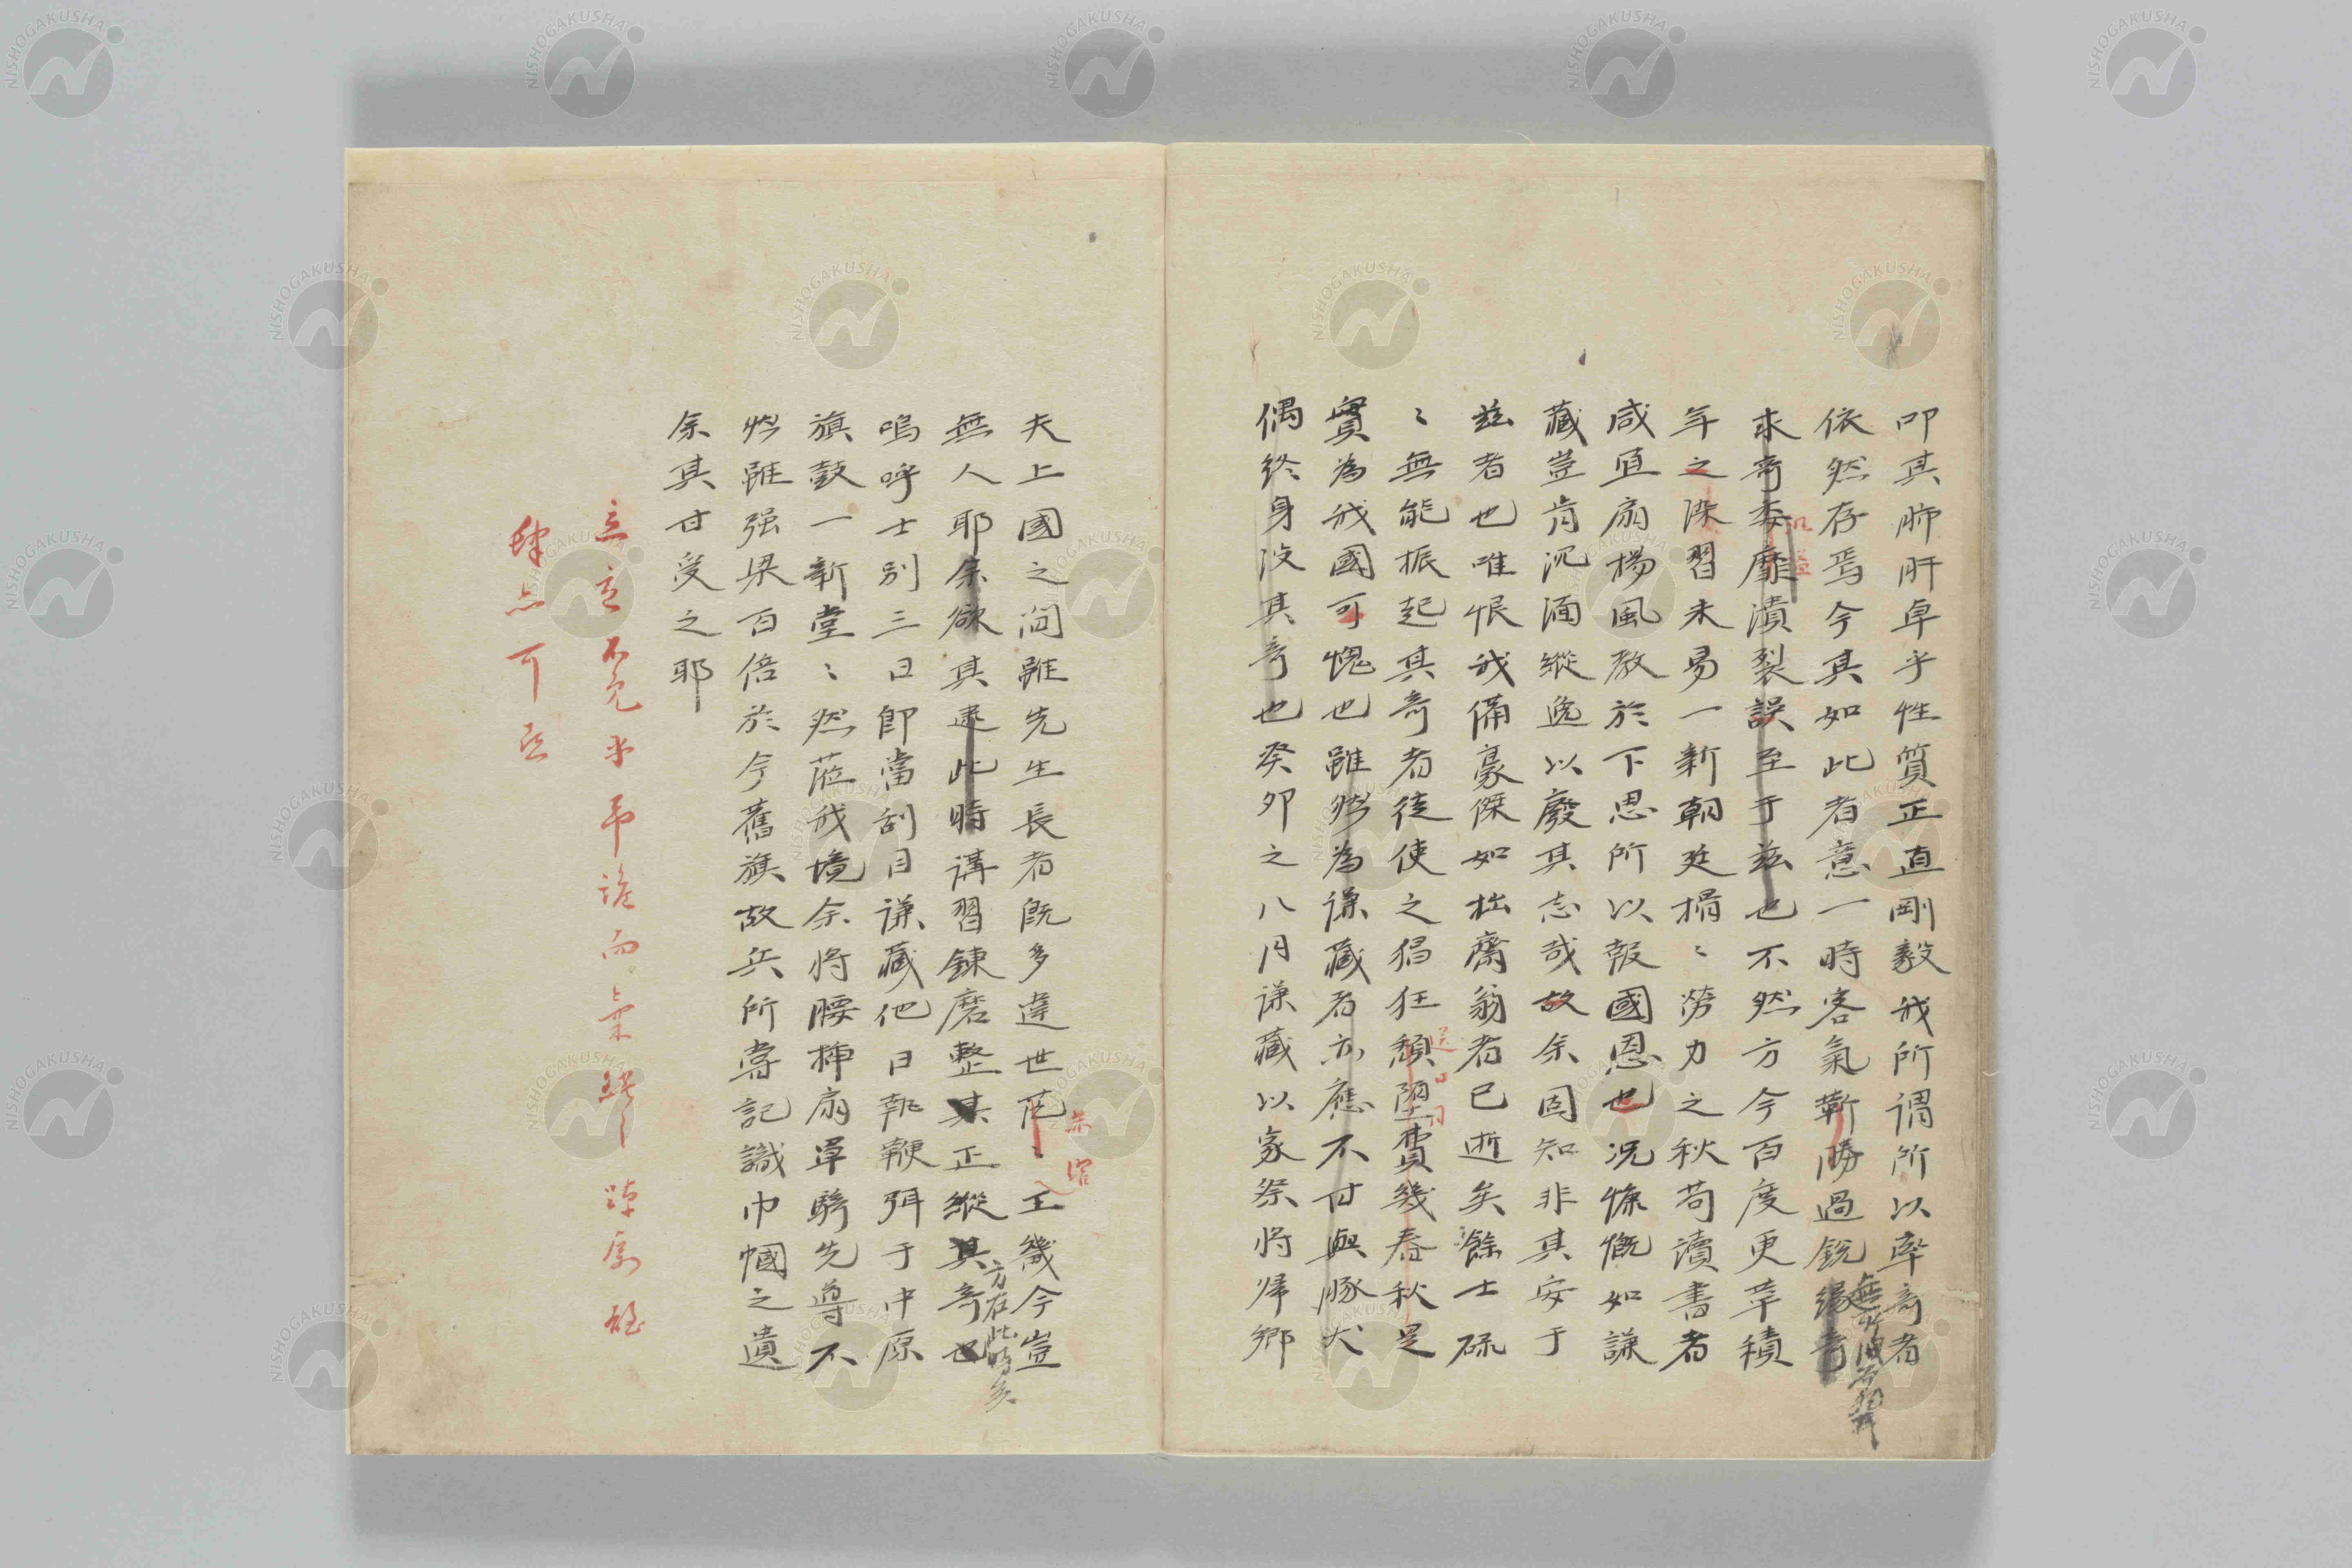 叩其肺肝卓乎性質正直剛毅我所謂所以率奇者
依然存焉今其如此者意一時客氣蘄勝過銳緣奇
求奇委靡潰裂誤至于茲也不然方今百度更革積
年之深習未易一新朝廷揭〻勞力之秋苟讀書者
咸宜扇揚風教於下思所以報國恩也況慷慨如謙
藏豈肯沉湎縱逸以廢其志哉故余固知非其安于
茲者也唯恨我備豪傑如拙齋翁者已逝矣餘士碌
〻無能振起其奇者徒使之猖狂頹墮費幾春秋是
實為我國可愧也雖然為謙藏者亦應不甘與豚犬
偶終身沒其奇也癸卯之八月謙藏以家祭將帰鄉
夫上國之間雖先生長者既多違世
王幾今豈
無人耶余欲其逮此時講習鍊磨整其正縱其奇也
方在此時矣
嗚呼士別三日即當刮目謙藏他日執鞭弭于中原
旗鼓一新堂〻然蒞我境余將腰挿扇單騎先導不
然雖强梁百倍於今舊旗故兵所嘗記識巾幗之遺
余其甘受之耶